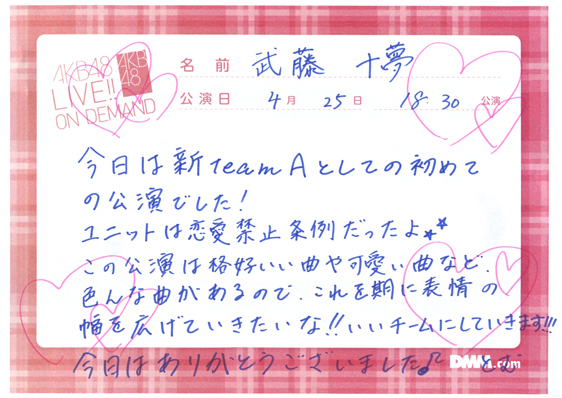 AKB48
LIVE!!
ON DEMAND
AKB
48
名前 武藤 十夢
公演日 4月 25日 18 30 公演
今日は新teamAとしての初めて
の公演でした!
ユニットは恋愛禁止条例だったよ
この公演は格好いい曲や可愛い曲など、
色んな曲があるので、これを期に表情の
幅を広げていきたいな!!いいチームにしていきます!!!
今日はありがとうございました♪ とむ
DMM.com